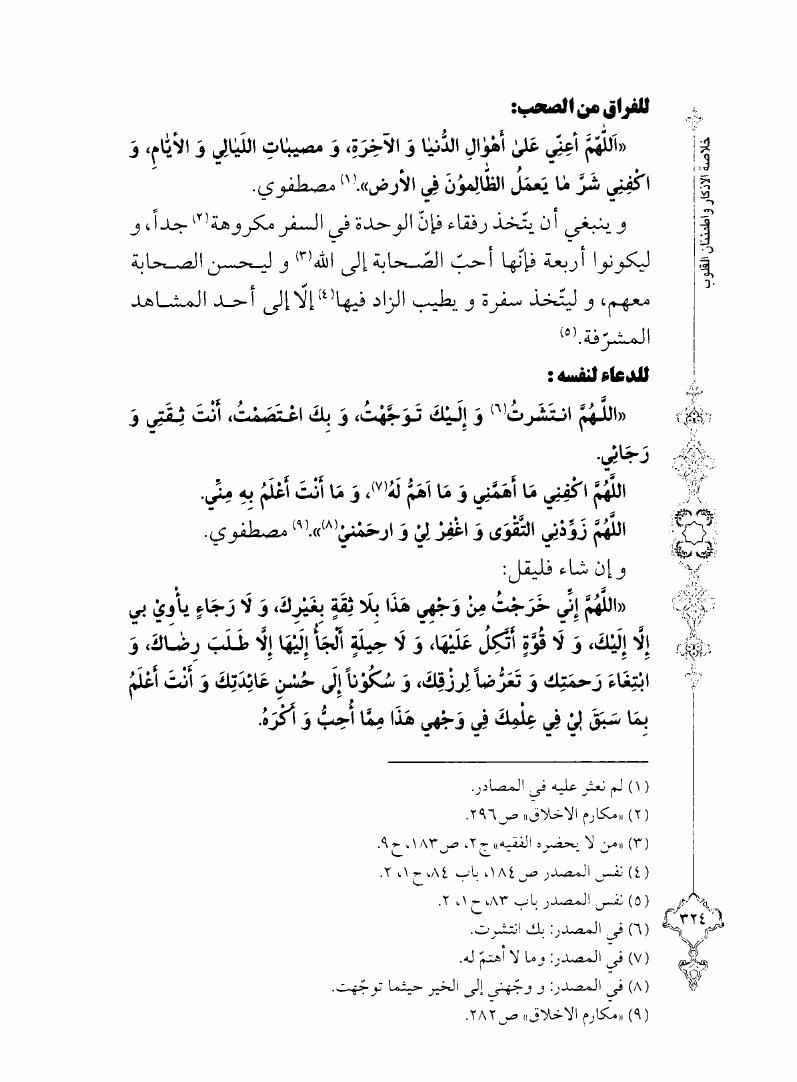 خلاصة الاذكار واطمئنان القلوب
للفراق من الصحب:
«اَللّٰهُمَّ أعِنِّي عَلىٰ أهْوٰالِ الدُّنيٰا وَ الآخِرَةِ، وَ مصيبٰاتِ اللَيٰالِي وَ الأيّٰامِ، وَ
اكْفِنِي شَرَّ مٰا يَعمَلُ الظّٰالِموُنَ فِي الأرض».(١) مصطفوي.
و ينبغي أن يتّخذ رفقاء فإنّ الوحدة في السفر مكروهة(٢) جداً، و
ليكونوا أربعة فإنّها أحبّ الصّحابة إلى الله(٣) و ليحسن الصحابة
معهم، و ليتّخذ سفرة و يطيب الزاد فيها(٤) إلّا إلى أحد المشاهد
المشرّفة.(٥)
للدعاء لنفسه:
«اللَّهُمَّ انتَشَرتُ(٦) وَ إِلَيْكَ تَوَجَّهْتُ، وَ بِكَ اعْتَصَمْتُ، أَنْتَ ثِقَتِي وَ
رَجَائِي.
اللَّهُمَّ اكْفِنِي مَا أَهَمَّنِي وَ مَا اَهَمُّ لَهُ(٧)، وَ مَا أَنْتَ أَعْلَمُ بِهِ مِنِّي.
اللَّهُمَّ زَوِّدْنِي التَّقْوَى وَ اغْفِرْ لِيْ وَ ارحَمْنيْ(٨)».(٩) مصطفوي.
و إن شاء فليقل:
«اللَّهُمَّ إِنِّي خَرَجْتُ مِنْ وَجْهِي هَذَا بِلَا ثِقَةٍ بِغَيْرِكَ، وَ لَا رَجَاءٍ يأوِيْ بي
إِلَّا إِلَيْكَ، وَ لَا قُوَّةٍ أَتَّكِلُ عَلَيْهَا، وَ لَا حِيلَةٍ أَلْجَأُ إِلَيْهَا إِلَّا طَلَبَ رِضٰاكَ، وَ
ابْتِغَاءَ رَحمَتِك وَ تَعَرُّضاً لِرزْقِكَ، وَ سُكُوْناً إلَى حُسْنِ عَائِدَتِكَ وَ أَنْتَ أَعْلَمُ
بِمَا سَبَقَ لِيْ فِي عِلْمِكَ فِي وَجْهِي هَذَا مِمَّا أُحِبُّ وَ أَكْرَهُ.
(١) لم نعثر عليه في المصادر.
(٢) «مكارم الاخلاق» ص٢٩٦.
(٣) «من لا يحضره الفقيه» ج٢، ص١٨٣، ح٩.
(٤) نفس المصدر ص١٨٤، باب ٨٤، ح١، ٢.
(٥) نفس المصدر باب ٨٣، ح١، ٢.
(٦) في المصدر: بك انتشرت.
(٧) في المصدر: وما لا أهتمّ له.
(٨) في المصدر: و وجّهني إلى الخير حيثما توجّهت.
(٩) «مكارم الاخلاق» ص٢٨٢.
٣٢٤